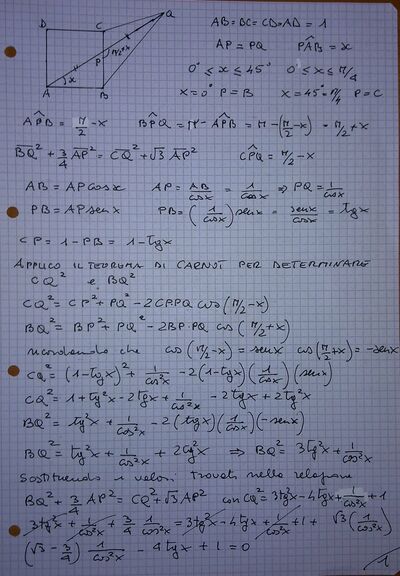 D C Q
P π/2+x
x
A B
AB=BC=CD=AD=1
AP=PQ PÂB=x
0° ≤ x ≤ 45° 0° ≤ x ≤ π/4
x=0° P≡B x=45°=π/4 P≡C
AP̂B = π/2 - x BP̂Q = π - AP̂B = π - (π/2 - x) = π/2 + x
BQ² + 3/4 AP² = CQ² + √3 AP² CP̂Q = π/2 - x
AB = AP cosx AP = AB/cosx = 1/cosx ⇒ PQ = 1/cosx
PB = AP senx PB = (1/cosx) senx = senx/cosx = tgx
CP = 1 - PB = 1 - tgx
APPLICO IL TEOREMA DI CARNOT PER DETERMINARE
CQ² e BQ²
CQ² = CP² + PQ² - 2CP·PQ cos(π/2 - x)
BQ² = BP² + PQ² - 2BP·PQ cos(π/2 + x)
ricordando che cos(π/2 - x) = senx cos(π/2 + x) = -senx
CQ² = (1-tgx)² + 1/cos²x - 2(1-tgx)(1/cosx)(senx)
CQ² = 1 + tg²x - 2tgx + 1/cos²x - 2tgx + 2tg²x
BQ² = tg²x + 1/cos²x - 2(tgx)(1/cosx)(-senx)
BQ² = tg²x + 1/cos²x + 2tg²x ⇒ BQ² = 3tg²x + 1/cos²x
Sostituendo i valori trovati nella relazione
BQ² + 3/4 AP² = CQ² + √3 AP² con CQ² = 3tg²x - 4tgx + 1/cos²x + 1
3tg²x + 1/cos²x + 3/4 1/cos²x = 3tg²x - 4tgx + 1/cos²x + 1 + √3(1/cos²x)
(√3 - 3/4) 1/cos²x - 4tgx + 1 = 0
1